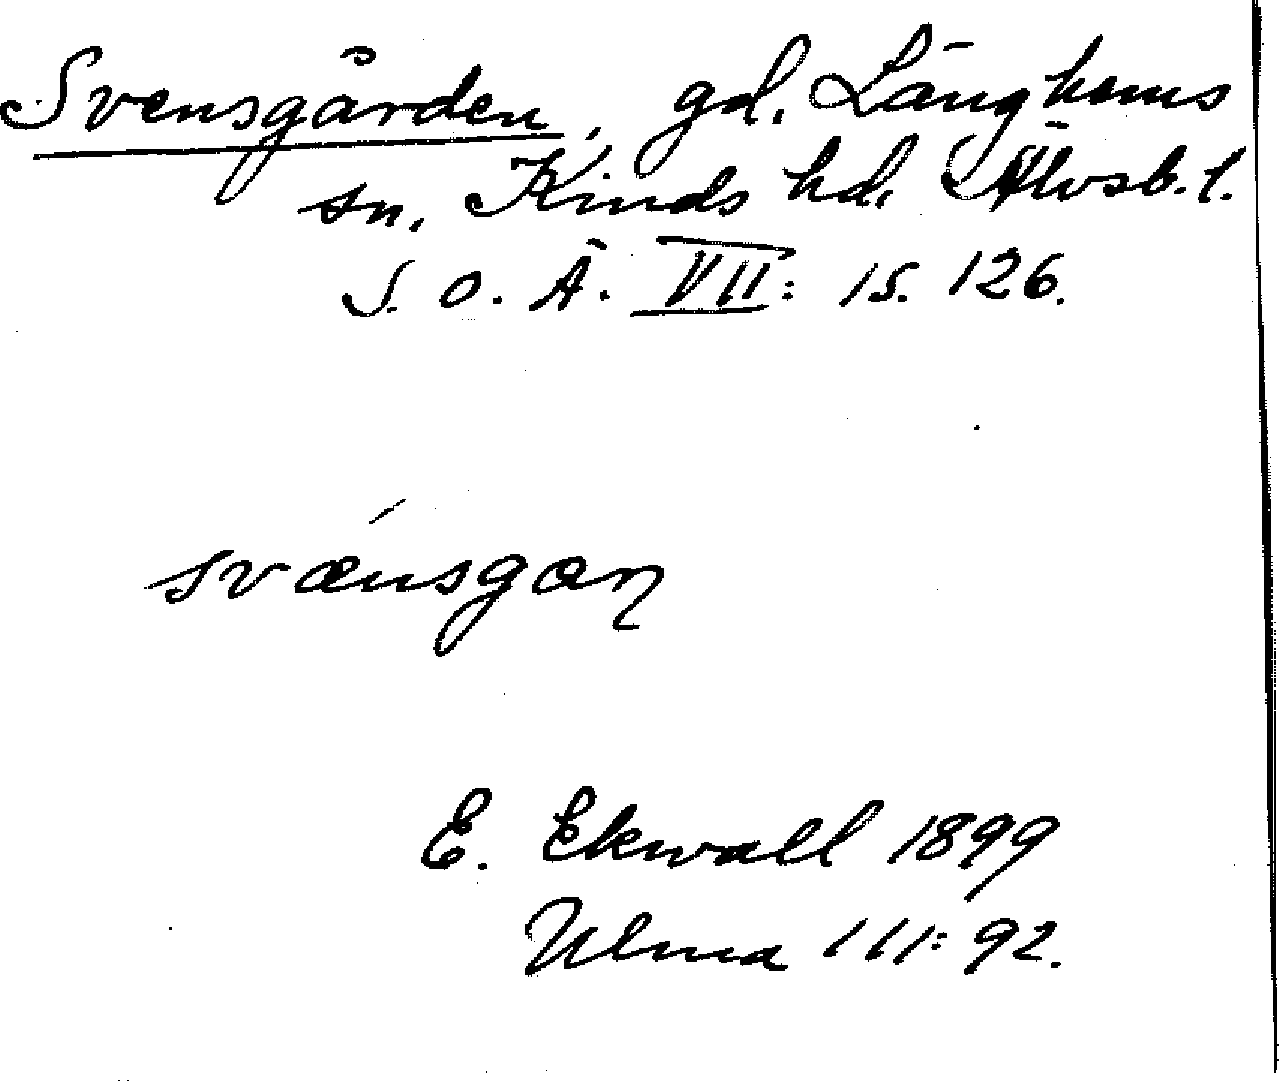 Svensgården, gd. Länghems
sn. Kinds hd. Älvsb. l.
S. O. Ä. VII: 1 s. 126.
svǽnsgaɳ
E. Ekwall 1899
Ulma 111: 92.